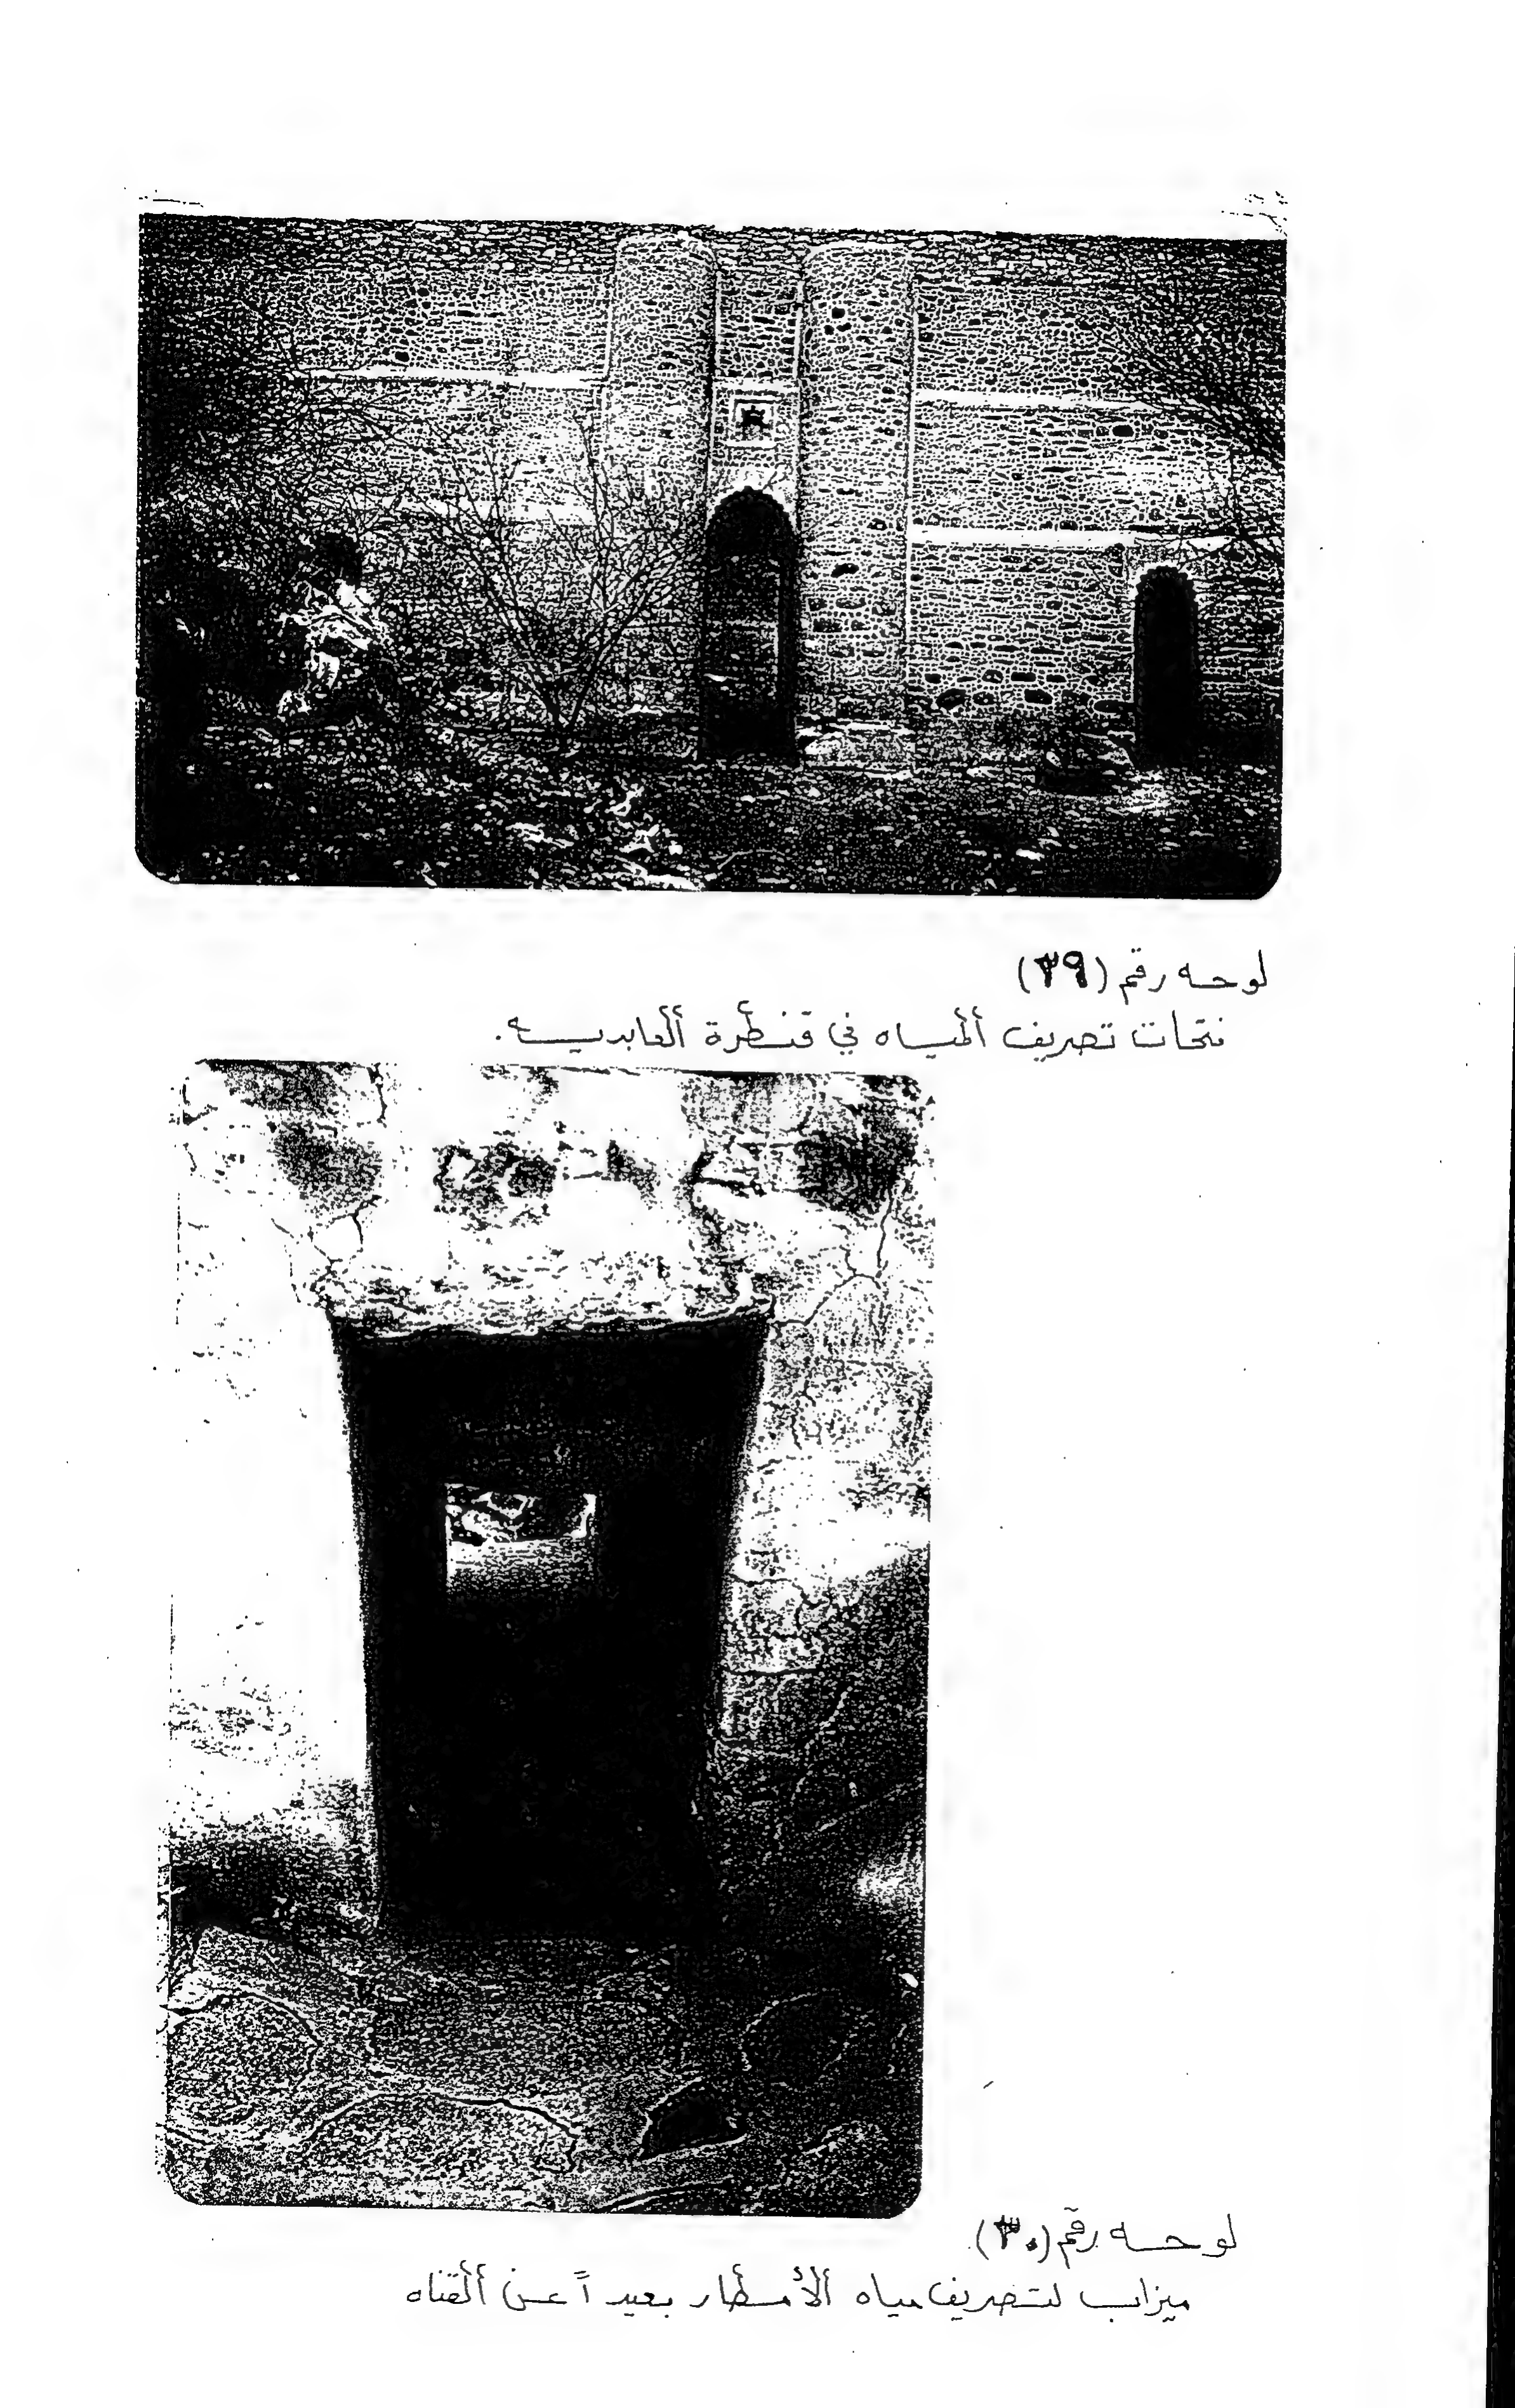 لوحه رقم (٢٩)
فتحات تصريف ألمياه في قنطرة ألعابديه.
لوحه رقم (٣٠)
ميزاب لتصريف مياه ألأمطار بعيداً عن ألقناه